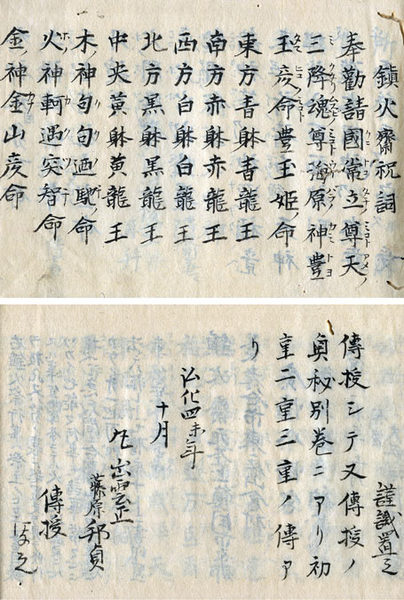 鎮火齋祝詞
奉勸請國常立尊天
三降魂尊海原神豊
玉彦命豊玉姫ノ命
東方青躰青龍王
南方赤躰赤龍王
西方白躰白龍王
北方黒躰黒龍王
中央黄躰黄龍王
木ノ神句句廼馳命
火ノ神軻遇突智命
金ノ神金山彦命
謹識置之
傳授シテ又傳授ノ
奥秘別巻ニアリ初
重二重三重ノ傳ア
リ
弘化四未年
十月
出雲正
藤原邦貞
傳授